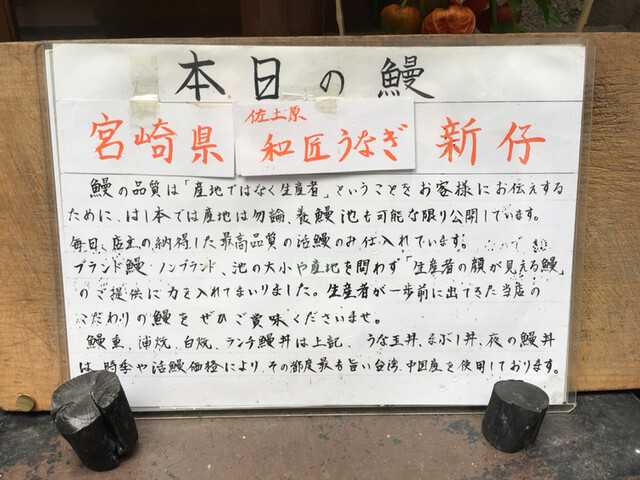 本日の鰻
宮崎県
佐土原
和匠うなぎ
新仔
鰻の品質は「産地ではなく生産者」ということをお客様にお伝えする
ために、はし本では産地は勿論、養鰻池も可能な限り公開しています。
毎日、店主の納得した最高品質の活鰻のみ仕入れています。
ブランド鰻・ノンブランド、池の大小や産地を問わず「生産者の顔が見える鰻」
のご提供に力を入れてまいりました。生産者が一歩前に出てきた当店の
こだわりの鰻をぜひご賞味くださいませ。
鰻重、蒲焼、白焼、ランチ鰻丼は上記、うな玉丼、まぶし丼、夜の鰻丼
は、時季や活鰻価格により、その都度最も旨い台湾、中国産を使用しております。